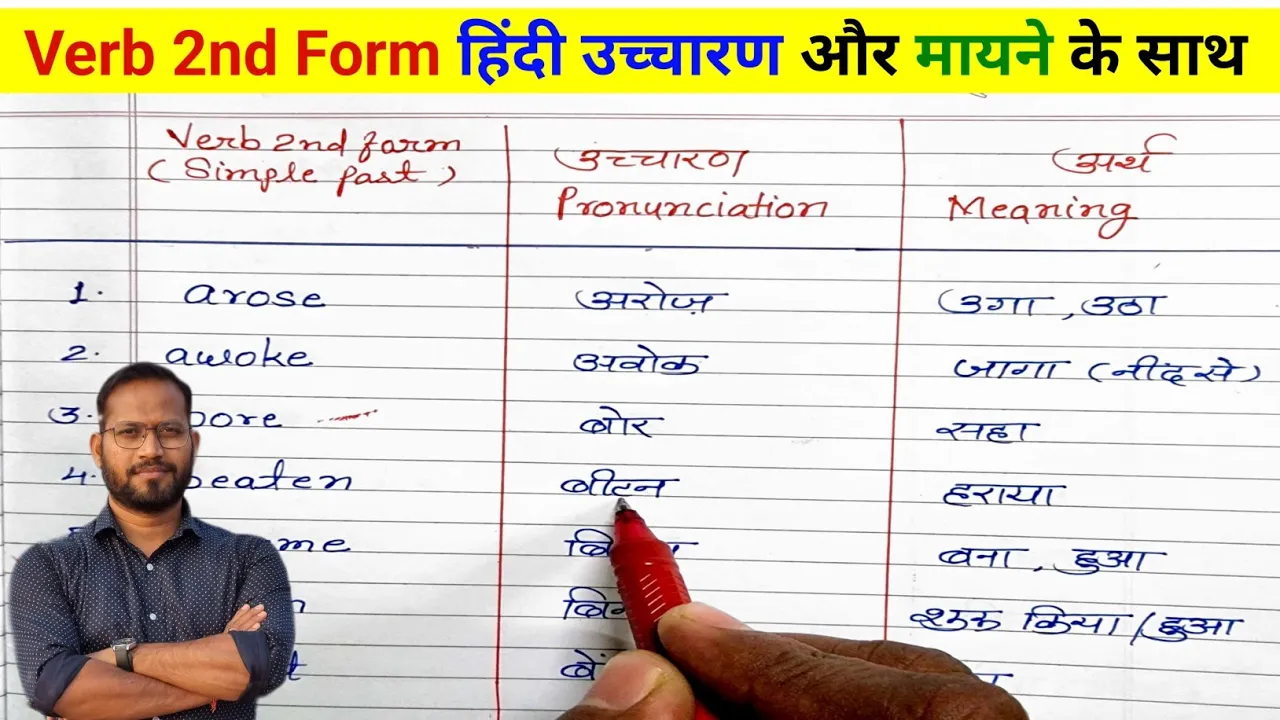 Verb 2nd Form हिंदी उच्चारण और मायने के साथ
Verb 2nd form उच्चारण अर्थ
(Simple past) Pronunciation Meaning
1. arose अरोज़ उगा, उठा
2. awoke अवोक जागा (नींद से)
3. bore बोर सहा
4. beaten बीटन हराया
बना, हुआ
शुरू किया/हुआ